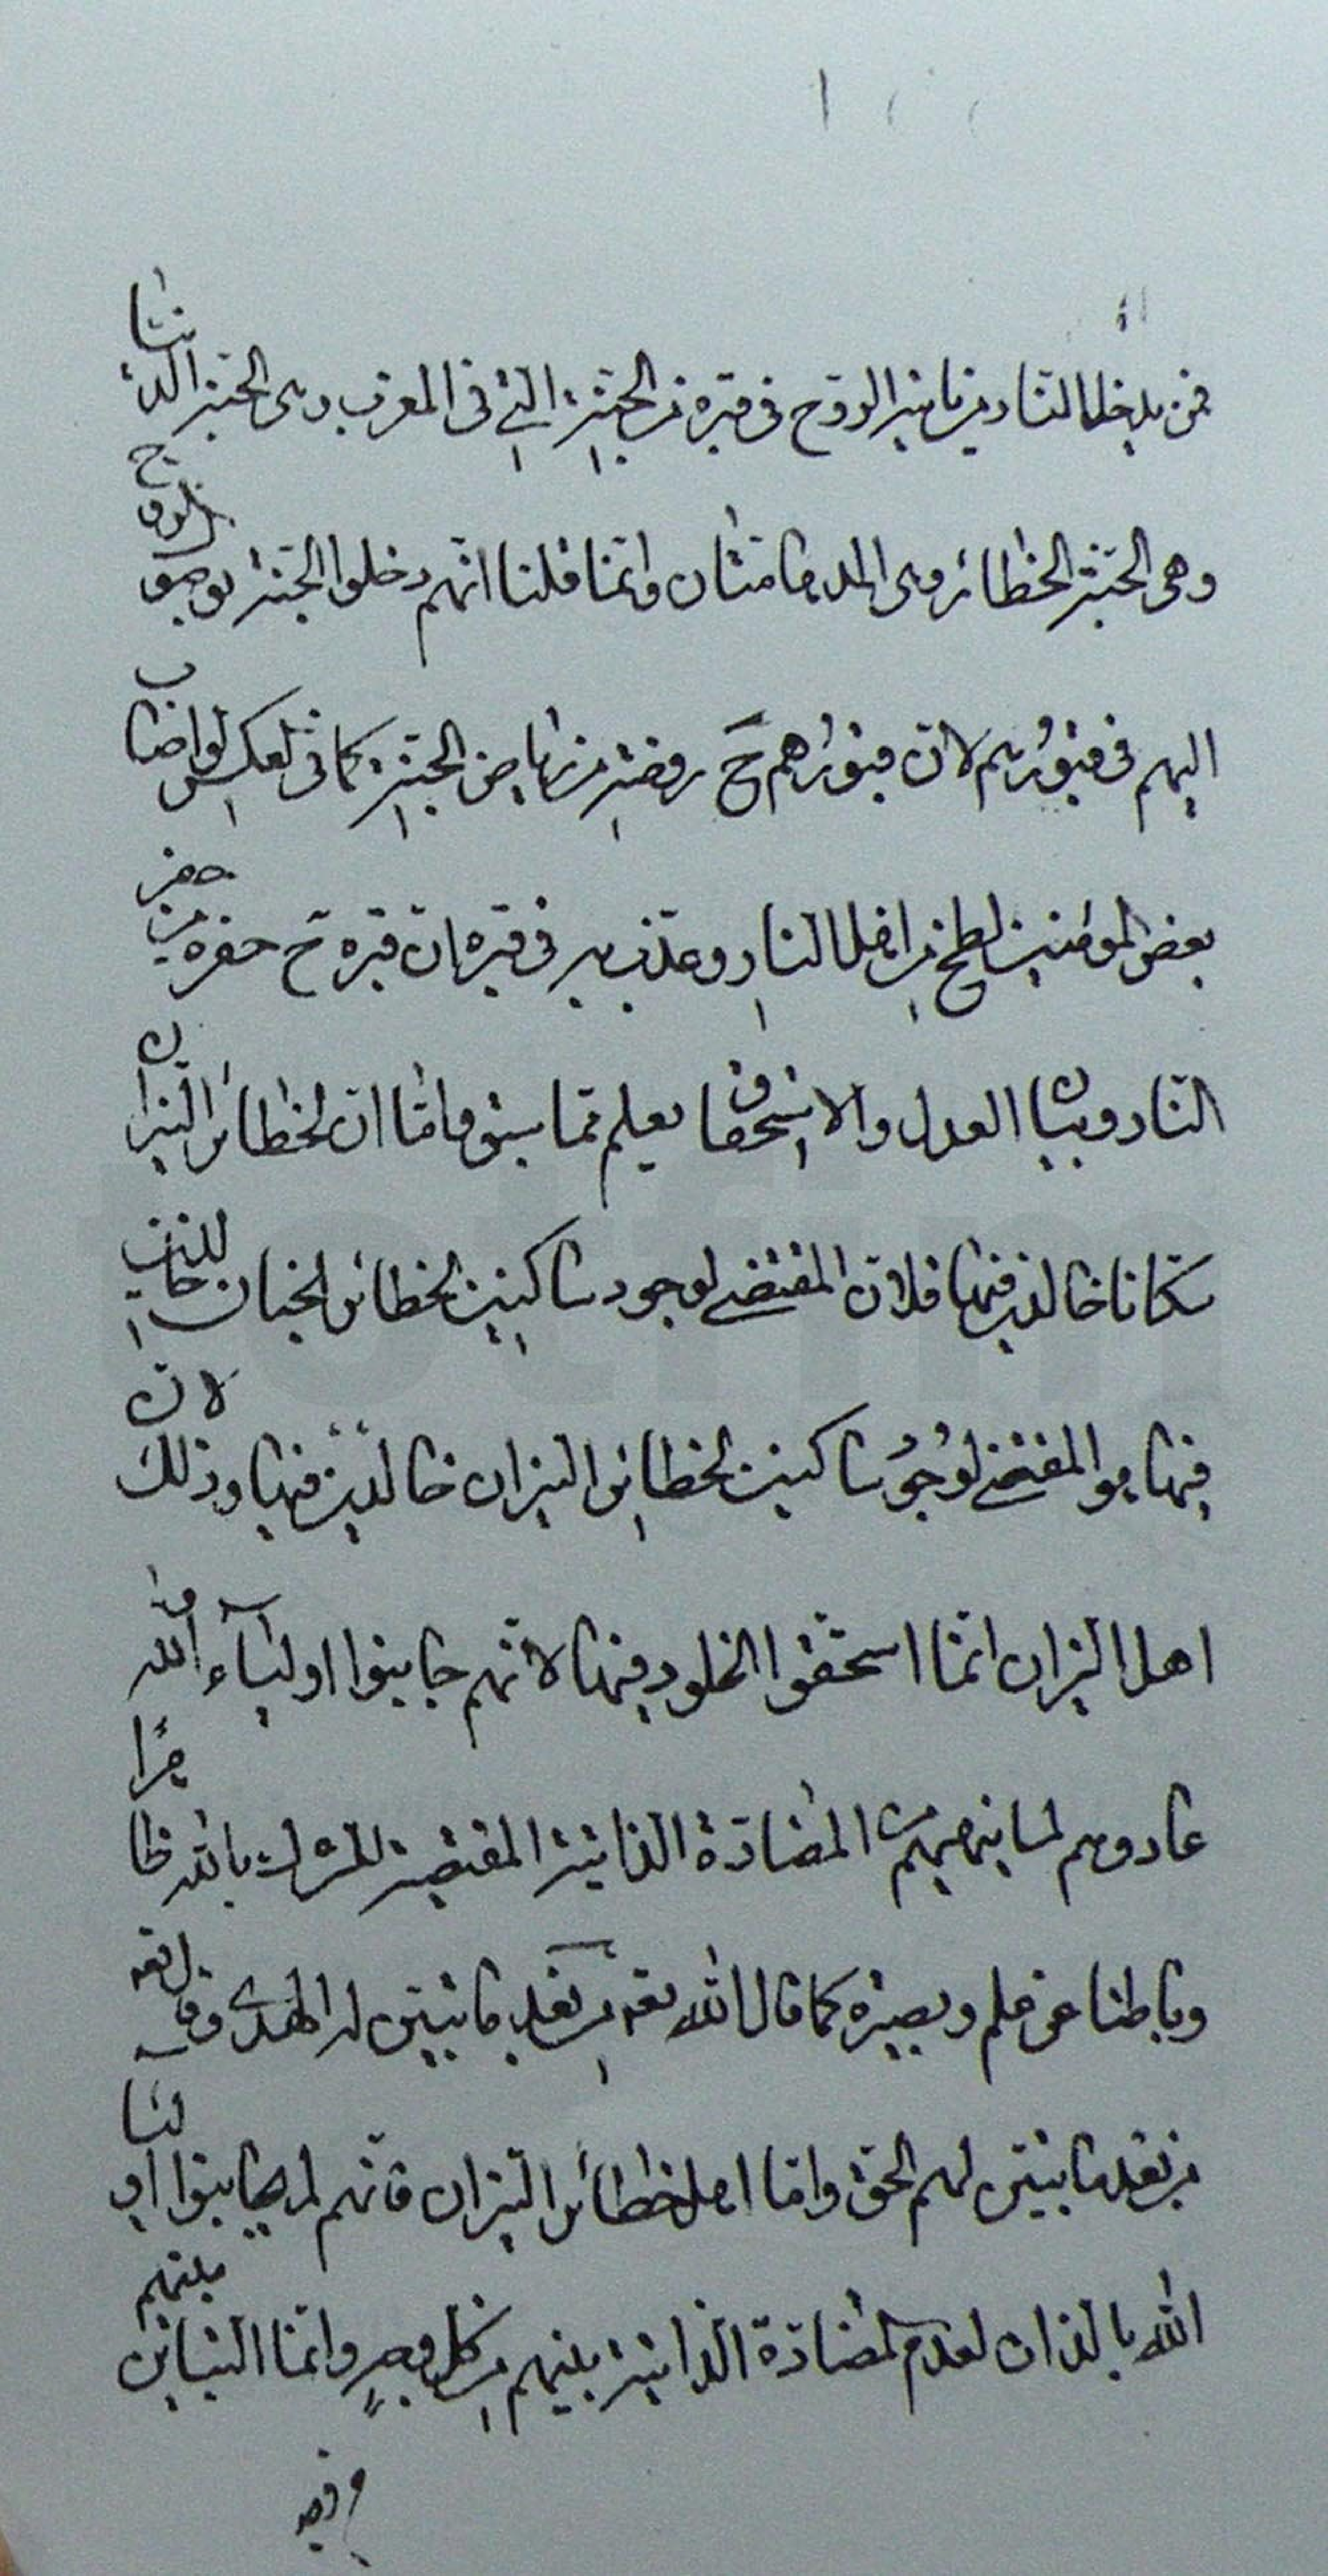 فمن يدخل النار من يأتيه الروح في قبره من الجنة التي في المغرب وهى الجنة الدنيا
وهى الجنة الحظائر وهى المدهامتان وانما قلنا انهم دخلوا الجنة بوصول الروح
اليهم في قبورهم لان قبورهم ح روضة من رياض الجنة كما في العكس لو اصاب
بعض المؤمنين لطخ من اهل النار وعذب به في قبره ان قبره ح حفرة من حفر
النار وبيان العدل والاستحقاق يعلم مما سبق واما ان لحظائر النيران
سكانا خالدين فيها فلان المقتضى لوجود ساكنين لحظائر الجنان خالدين
فيها هو المقتضى لوجود ساكنين لحظائر النيران خالدين فيها وذلك لان
اهل النيران انما استحقوا الخلود فيها لانهم جانبوا اولياء الله و
عادوهم لما بينهم من المضادة الذاتية المقتضية للشرك بالله ظاهرا
وباطنا عن علم وبصيرة كما قال الله تعه من بعد ما تبين له الهدى وقال تعه
من بعد ما تبين لهم الحق واما اهل حظائر النيران فانهم لم يجانبوا اولياء
الله بالذات لعدم المضادة الذاتية بينهم من كل وجه وانما التباين بينهم
من وجه